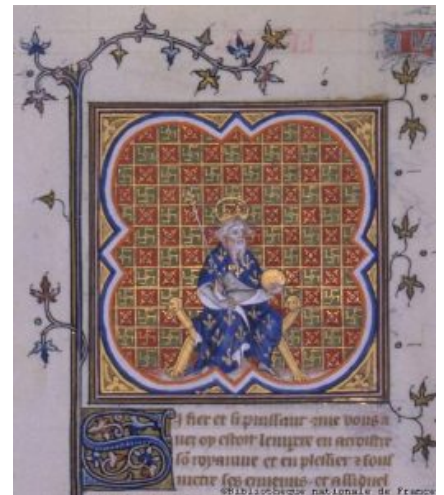 Si fier et si puissant que vous a
uez oy estoit en acroistre
so royaume et en plessier ⁊ souz
mettre ses et assiduel
©Bibliothèque nationale de France